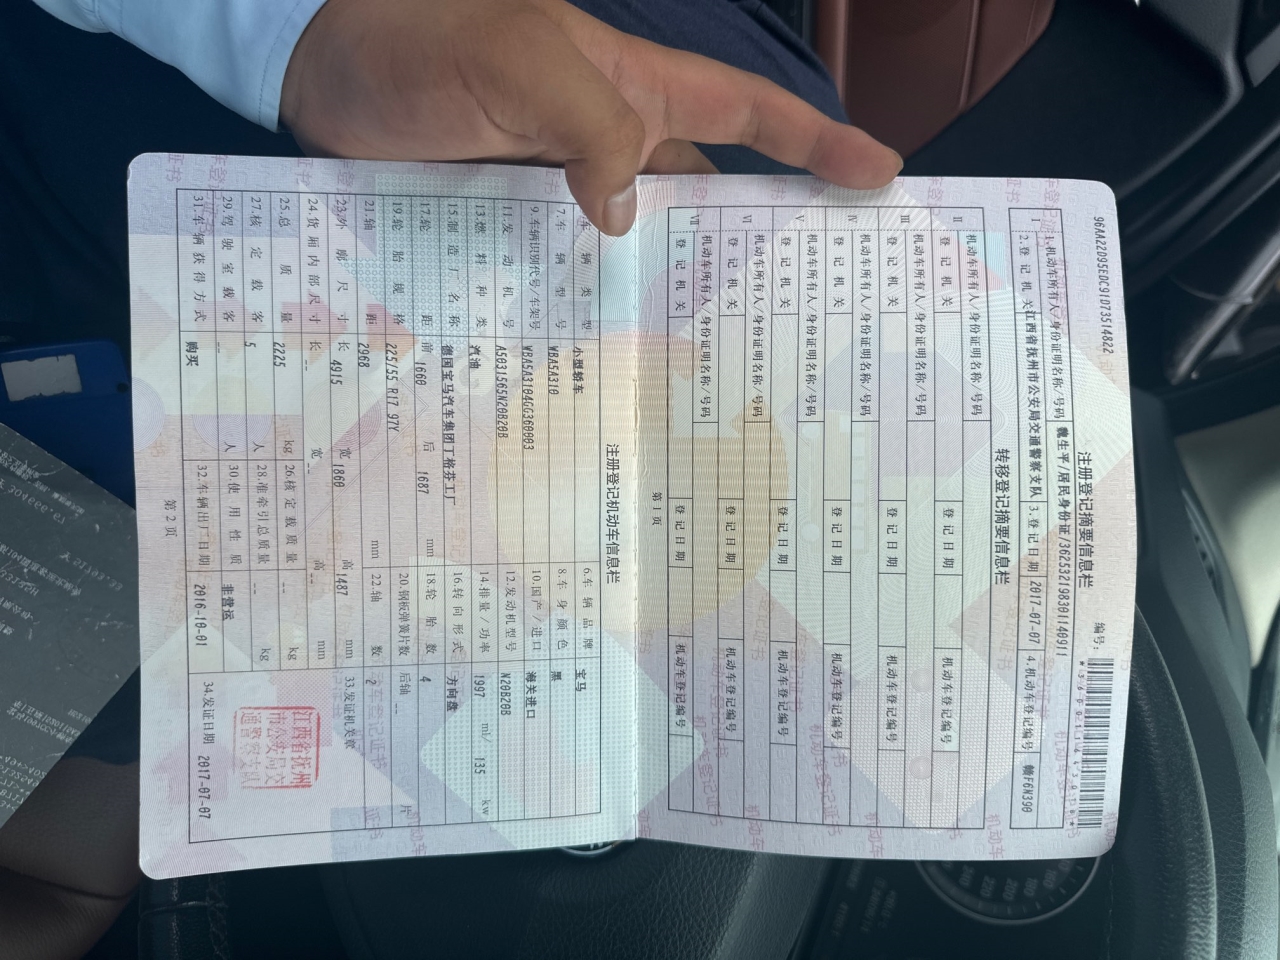 96AA22D95EDC91D73514822
编号:
注册登记摘要信息栏
Ⅰ 1.机动车所有人/身份证明名称/号码 魏生平/居民身份证/362532198301140911
2.登记机关 江西省抚州市公安局交通警察支队 3.登记日期 2017-07-07 4.机动车登记编号 赣F6N390
转移登记摘要信息栏
Ⅱ 机动车所有人/身份证明名称/号码
登记机关 登记日期 机动车登记编号
Ⅲ 机动车所有人/身份证明名称/号码
登记机关 登记日期 机动车登记编号
Ⅳ 机动车所有人/身份证明名称/号码
登记机关 登记日期 机动车登记编号
Ⅴ 机动车所有人/身份证明名称/号码
登记机关 登记日期 机动车登记编号
Ⅵ 机动车所有人/身份证明名称/号码
登记机关 登记日期 机动车登记编号
Ⅶ 机动车所有人/身份证明名称/号码
登记机关 登记日期 机动车登记编号
第 1 页
注册登记机动车信息栏
车辆类型 小型轿车 6.车辆品牌 宝马
7.车辆型号 WBA5A310 8.车身颜色 黑
9.车辆识别代号/车架号 WBA5A3104GG360003 10.国产/进口 海关进口
11.发动机号 A5031565N20B20B 12.发动机型号 N20B20B
13.燃料种类 汽油 14.排量/功率 1997 ml/ 135 kw
15.制造厂名称 德国宝马汽车集团丁格芬工厂 16.转向形式 方向盘
17.轮距 前 1600 后 1687 mm 18.轮胎数 4
19.轮胎规格 225/55 R17 97Y 20.钢板弹簧片数 后轴 -- 片
21.轴距 2968 mm 22.轴数 2
23.外廓尺寸 长 4915 宽 1860 高 1487 mm 33.发证机关章
24.货厢内部尺寸 长 -- 宽 -- 高 -- mm
25.总质量 2225 kg 26.核定载质量 -- kg
27.核定载客 5 人 28.准牵引总质量 -- kg
29.驾驶室载客 -- 人 30.使用性质 非营运
31.车辆获得方式 购买 32.车辆出厂日期 2016-10-01 34.发证日期 2017-07-07
江西省抚州
市公安局交
通警察支队
第 2 页